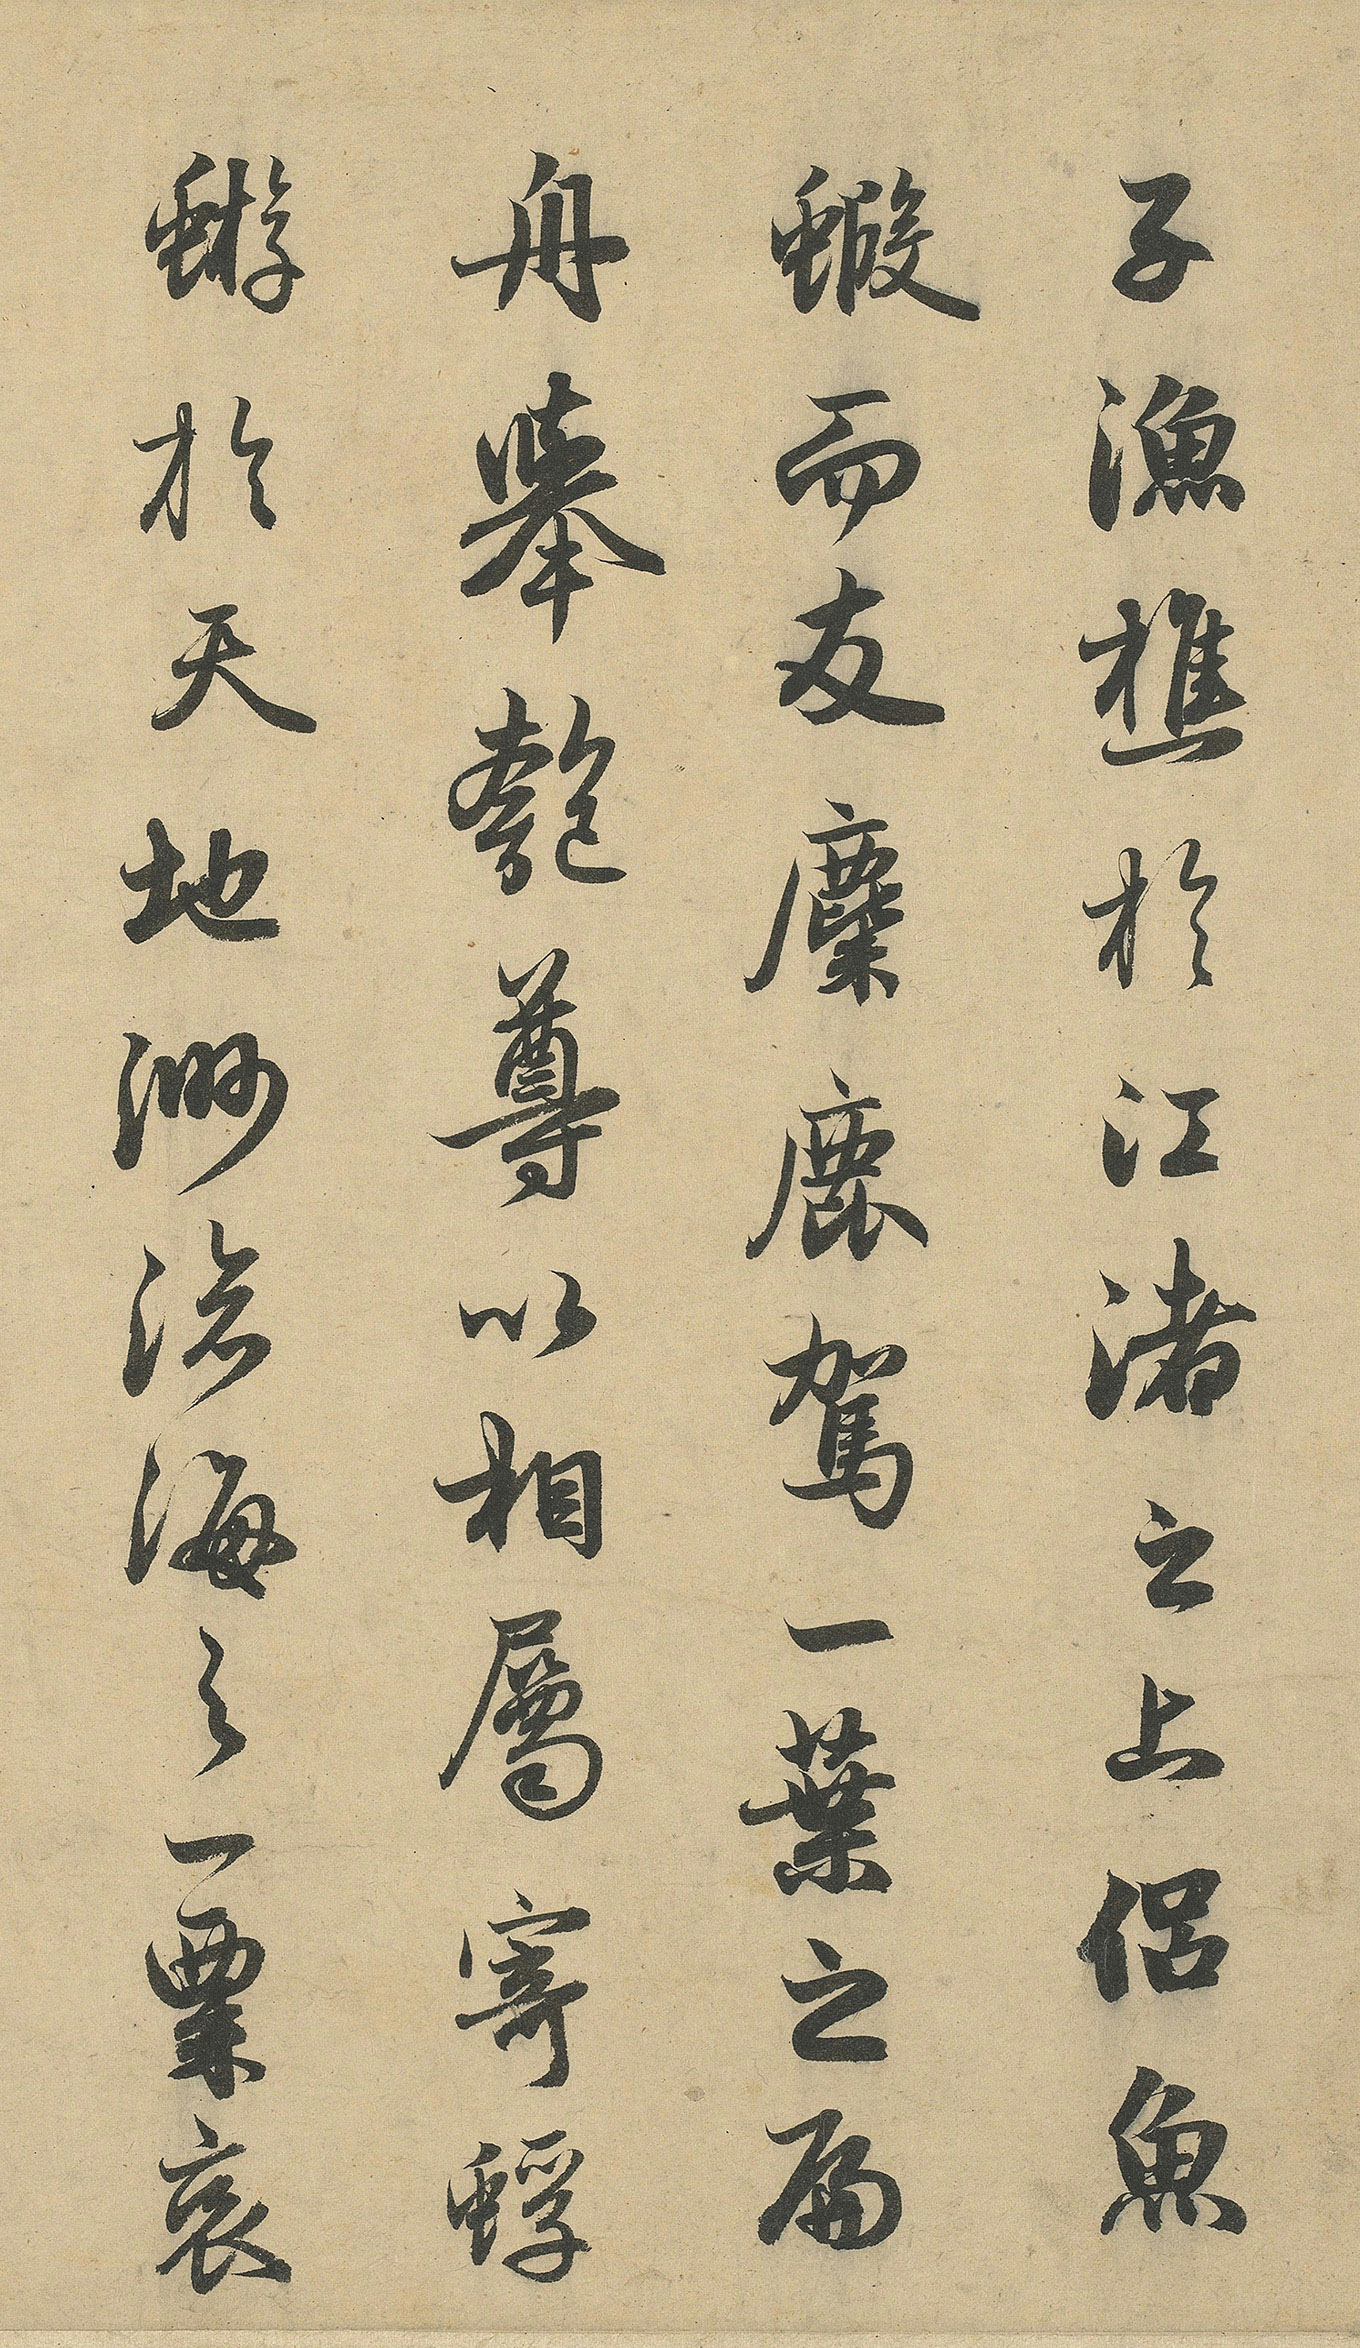 子漁樵於江渚之上侶魚
蝦而友麋鹿駕一葉之扁
舟舉匏尊以相屬寄蜉
蝣於天地渺滄海之一粟哀